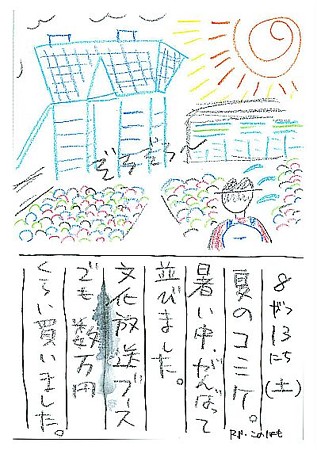 ぞろぞろ〜
8がつ13にち(土)
夏のコミケ。
暑い中、がんばって
並びました。
文化放送ブース
でも数万円
くらい買いました。